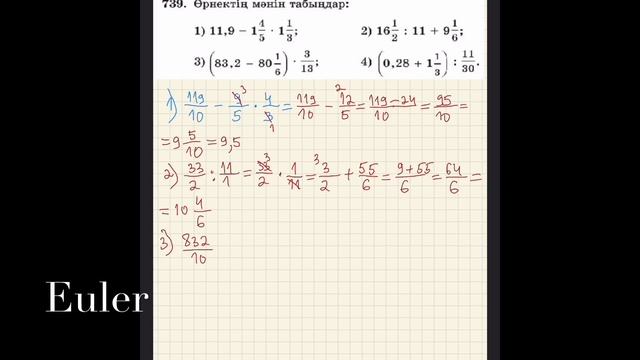 739. Өрнектің мәнін табыңдар:
1) 11,9 − 1 4/5 · 1 1/3; 2) 16 1/2 : 11 + 9 1/6;
3) (83,2 − 80 1/6) · 3/13; 4) (0,28 + 1 1/3) : 11/30.
1) 119/10 − 9/5 · 4/3 = 119/10 − 12/5 = 119−24/10 = 95/10 =
= 9 5/10 = 9,5
2) 33/2 : 11/1 = 33/2 · 1/11 = 3/2 + 55/6 = 9+55/6 = 64/6 =
= 10 4/6
3) 832/10
Euler